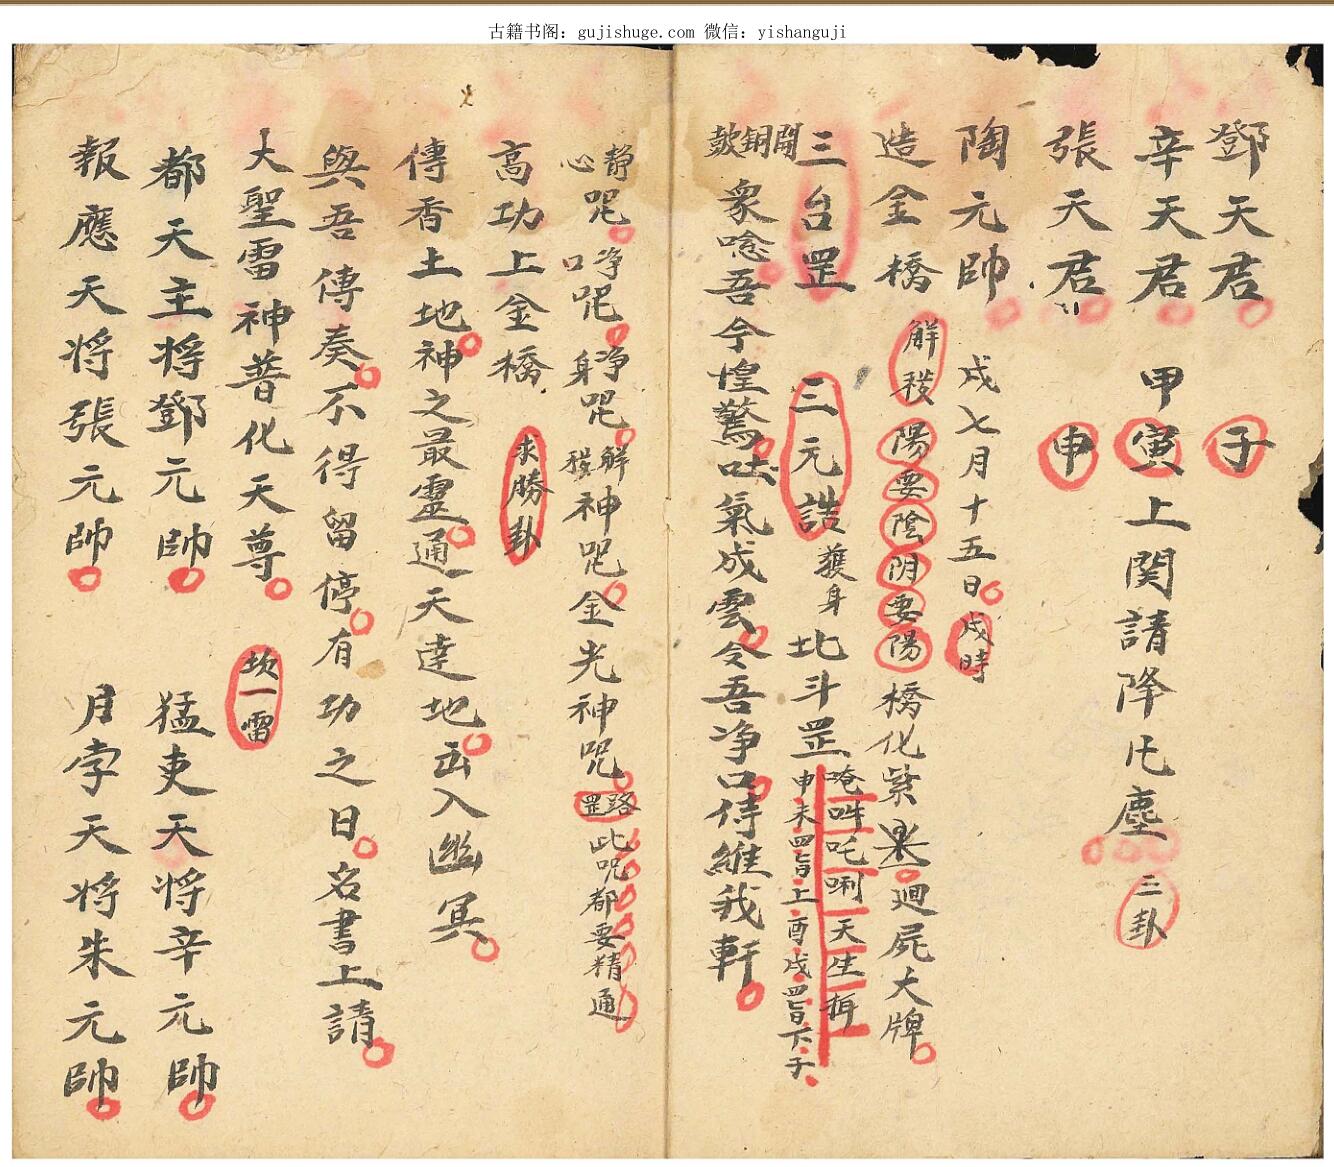 古籍书阁：gujishuge.com 微信：yishanguji
鄧天君 子
辛天君 甲寅上関請降凡塵 三卦
張天君 申
陶元帥 戌七月十五日戌時
造金橋 解穢 陽要陰 阴要陽 橋化紫 廻屍大牌
三台罡 三元誥 護身 北斗罡 唵吽吒唎天生
申未四旨上酉戌四旨下子
開鋼皷 衆唸吾今惶驚吐氣成雲令吾净口侍維我軒
静心呪 净口呪 净身呪 解穢神呪 金光神呪 路罡 此呪都要精通
高功上金橋 求勝卦
傳香土地神之最靈通天達地出入幽冥
與吾傳奏不得留停有功之日名書上請
大聖雷神普化天尊 坎一雷
都天主将鄧元帥 猛吏天将辛元帥
報應天将張元帥 月孛天将朱元帥